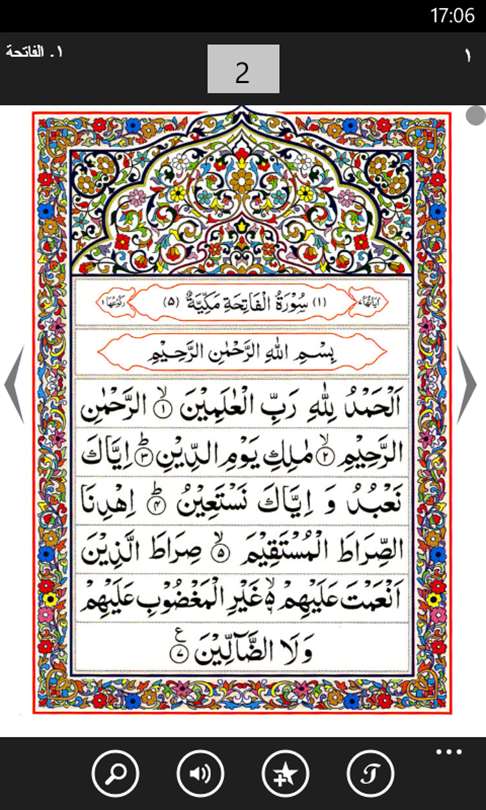 17:06
١. الفاتحة
2
١
اٰيَاتُهَا ٧ (١) سُوْرَةُ الْفَاتِحَةِ مَكِّيَّةٌ (٥) رُكُوْعُهَا ١
بِسْمِ اللهِ الرَّحْمٰنِ الرَّحِيْمِ
اَلْحَمْدُ لِلّٰهِ رَبِّ الْعٰلَمِيْنَ ۙ﴿١﴾ الرَّحْمٰنِ
الرَّحِيْمِ ۙ﴿٢﴾ مٰلِكِ يَوْمِ الدِّيْنِ ؕ﴿٣﴾ اِيَّاكَ
نَعْبُدُ وَ اِيَّاكَ نَسْتَعِيْنُ ؕ﴿۴﴾ اِهْدِنَا
الصِّرَاطَ الْمُسْتَقِيْمَ ۙ﴿۵﴾ صِرَاطَ الَّذِيْنَ
اَنْعَمْتَ عَلَيْهِمْ ۙ۬ۦ غَيْرِ الْمَغْضُوْبِ عَلَيْهِمْ
وَلَا الضَّآلِّيْنَ ﴿٧﴾ ع